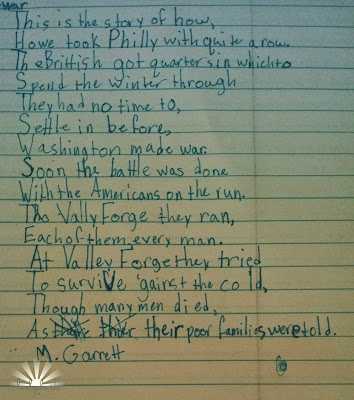 war
This is the story of how,
Howe took Philly with quite a row.
The Brittish got quarters in which to
Spend the winter through
They had no time to,
Settle in before,
Washington made war.
Soon the battle was done
With the Americans on the run.
Tho Vally Forge they ran,
Each of them, every man.
At Valley Forge they tried
To survive 'gainst the cold,
Though many men died,
As their poor families were told.
M. Garrett